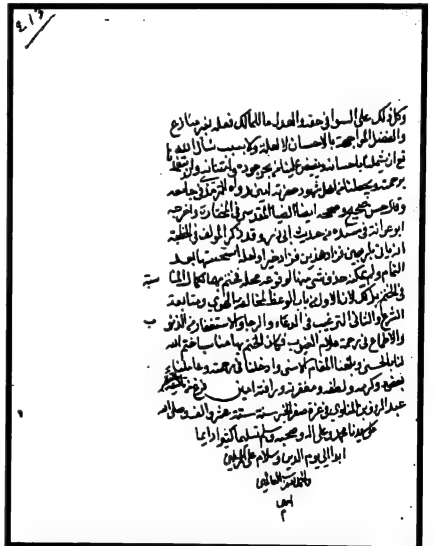 ٤١٥
وكل ذلك على السواء في حقه والعدل ما للمالك فعله بغير منازع
والفضل المراجحة بالاحسان لا لعلة ولا بسبب نسأل الله
تع ان يشملنا باحسانه ويفيض علينا من بحر جوده وامتنانه وان
برحمته ويجعلنا من اهل شهود حضرته امين رواه الترمذي في جامعه
وقال حسن صحيح وصححه ايضا الضيا المقدسي في المختارة واخرجه
ابو عوانة في مسنده من حديث ابي وقد ذكر المولف في الخطبة
ان فزاد هذين فزاد خيرا ولهذا استحسنتها بعد
التمام ولم يمكن حذف تسميتها لوقوعه محله لختم بهما كمال
في الختم بذلك لان الاول من باب الوعظ لمخالفة الهوى ومتابعة
الشرع والثاني الترغيب في الدعاء والرجا والاستغفار من الذنوب
والاطماع في رحمة علام الغيوب فكان الختم بهما مناسبا ختم الله
لنا بالحسنى وبلغنا المقام الاسنى وادخلنا في رحمته وعاملنا
بفضله وكرمه ولطفه ومغفرته ورافته امين فرغ من
عبد الرؤف بن المناوي في غرة صفر الخير سنة ستة عشر والف وصلى الله
على سيدنا محمد وعلى اله وصحبه وسلم تسليما كثيرا دايما
ابدا الى يوم الدين وسلام على المرسلين
والحمد لله رب العالمين
امين
م